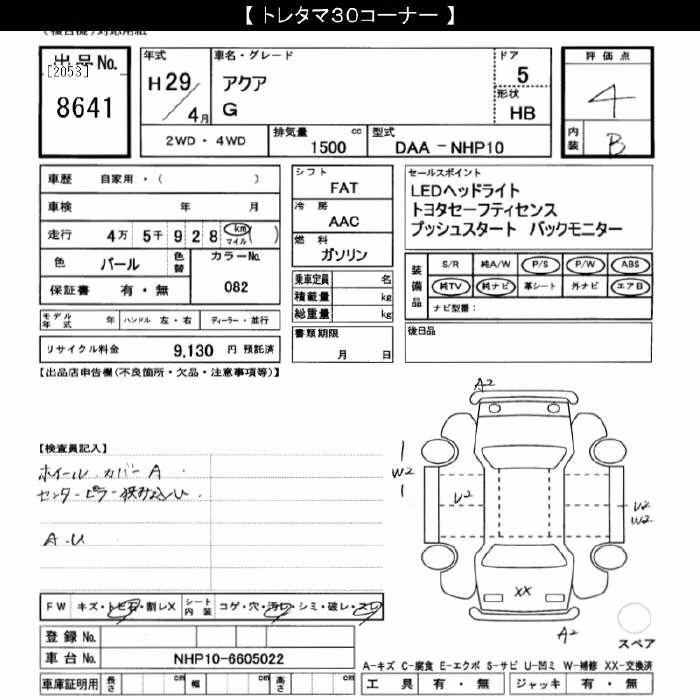 【 トレタマ30コーナー 】
出品No.
[2053]
8641
年式
H29/4月
車名・グレード
アクア
G
ドア
5
形状
HB
評価点
4
内装
B
2WD・4WD
排気量 cc
1500
型式
DAA－NHP10
車歴 自家用・( )
車検 年 月
走行 4万 5千 9 2 8 km マイル )
色 パール 色替
カラーNo.
082
保証書 有・無
モデル年式 年 ハンドル 左・右 ディーラー・並行
リサイクル料金 9,130 円 預託済
シフト
FAT
冷房
AAC
燃料
ガソリン
乗車定員 名
積載量 kg
総重量 kg
書類期限
月 日
セールスポイント
LEDヘッドライト
トヨタセーフティセンス
プッシュスタート バックモニター
装備品
S/R 純A/W P/S P/W ABS
純TV 純ナビ 革シート 外ナビ エアB
ナビ型番:
後日品
【出品店申告欄(不良箇所・欠品・注意事項等)】
【検査員記入】
ホイールカバーA
センターピラー挟み込みU
A・U
A2
W2
U2
U2
W2
XX
A2
スペア
FW キズ・トビ石・割レX シート内装 コゲ・穴・汚レ・シミ・破レ・スレ
登録No.
車台No. NHP10-6605022
車庫証明用 長さ cm 幅 cm 高さ cm
A-キズ C-腐食 E-エクボ S-サビ U-凹ミ W-補修 XX-交換済
工具 有・無 ジャッキ 有・無